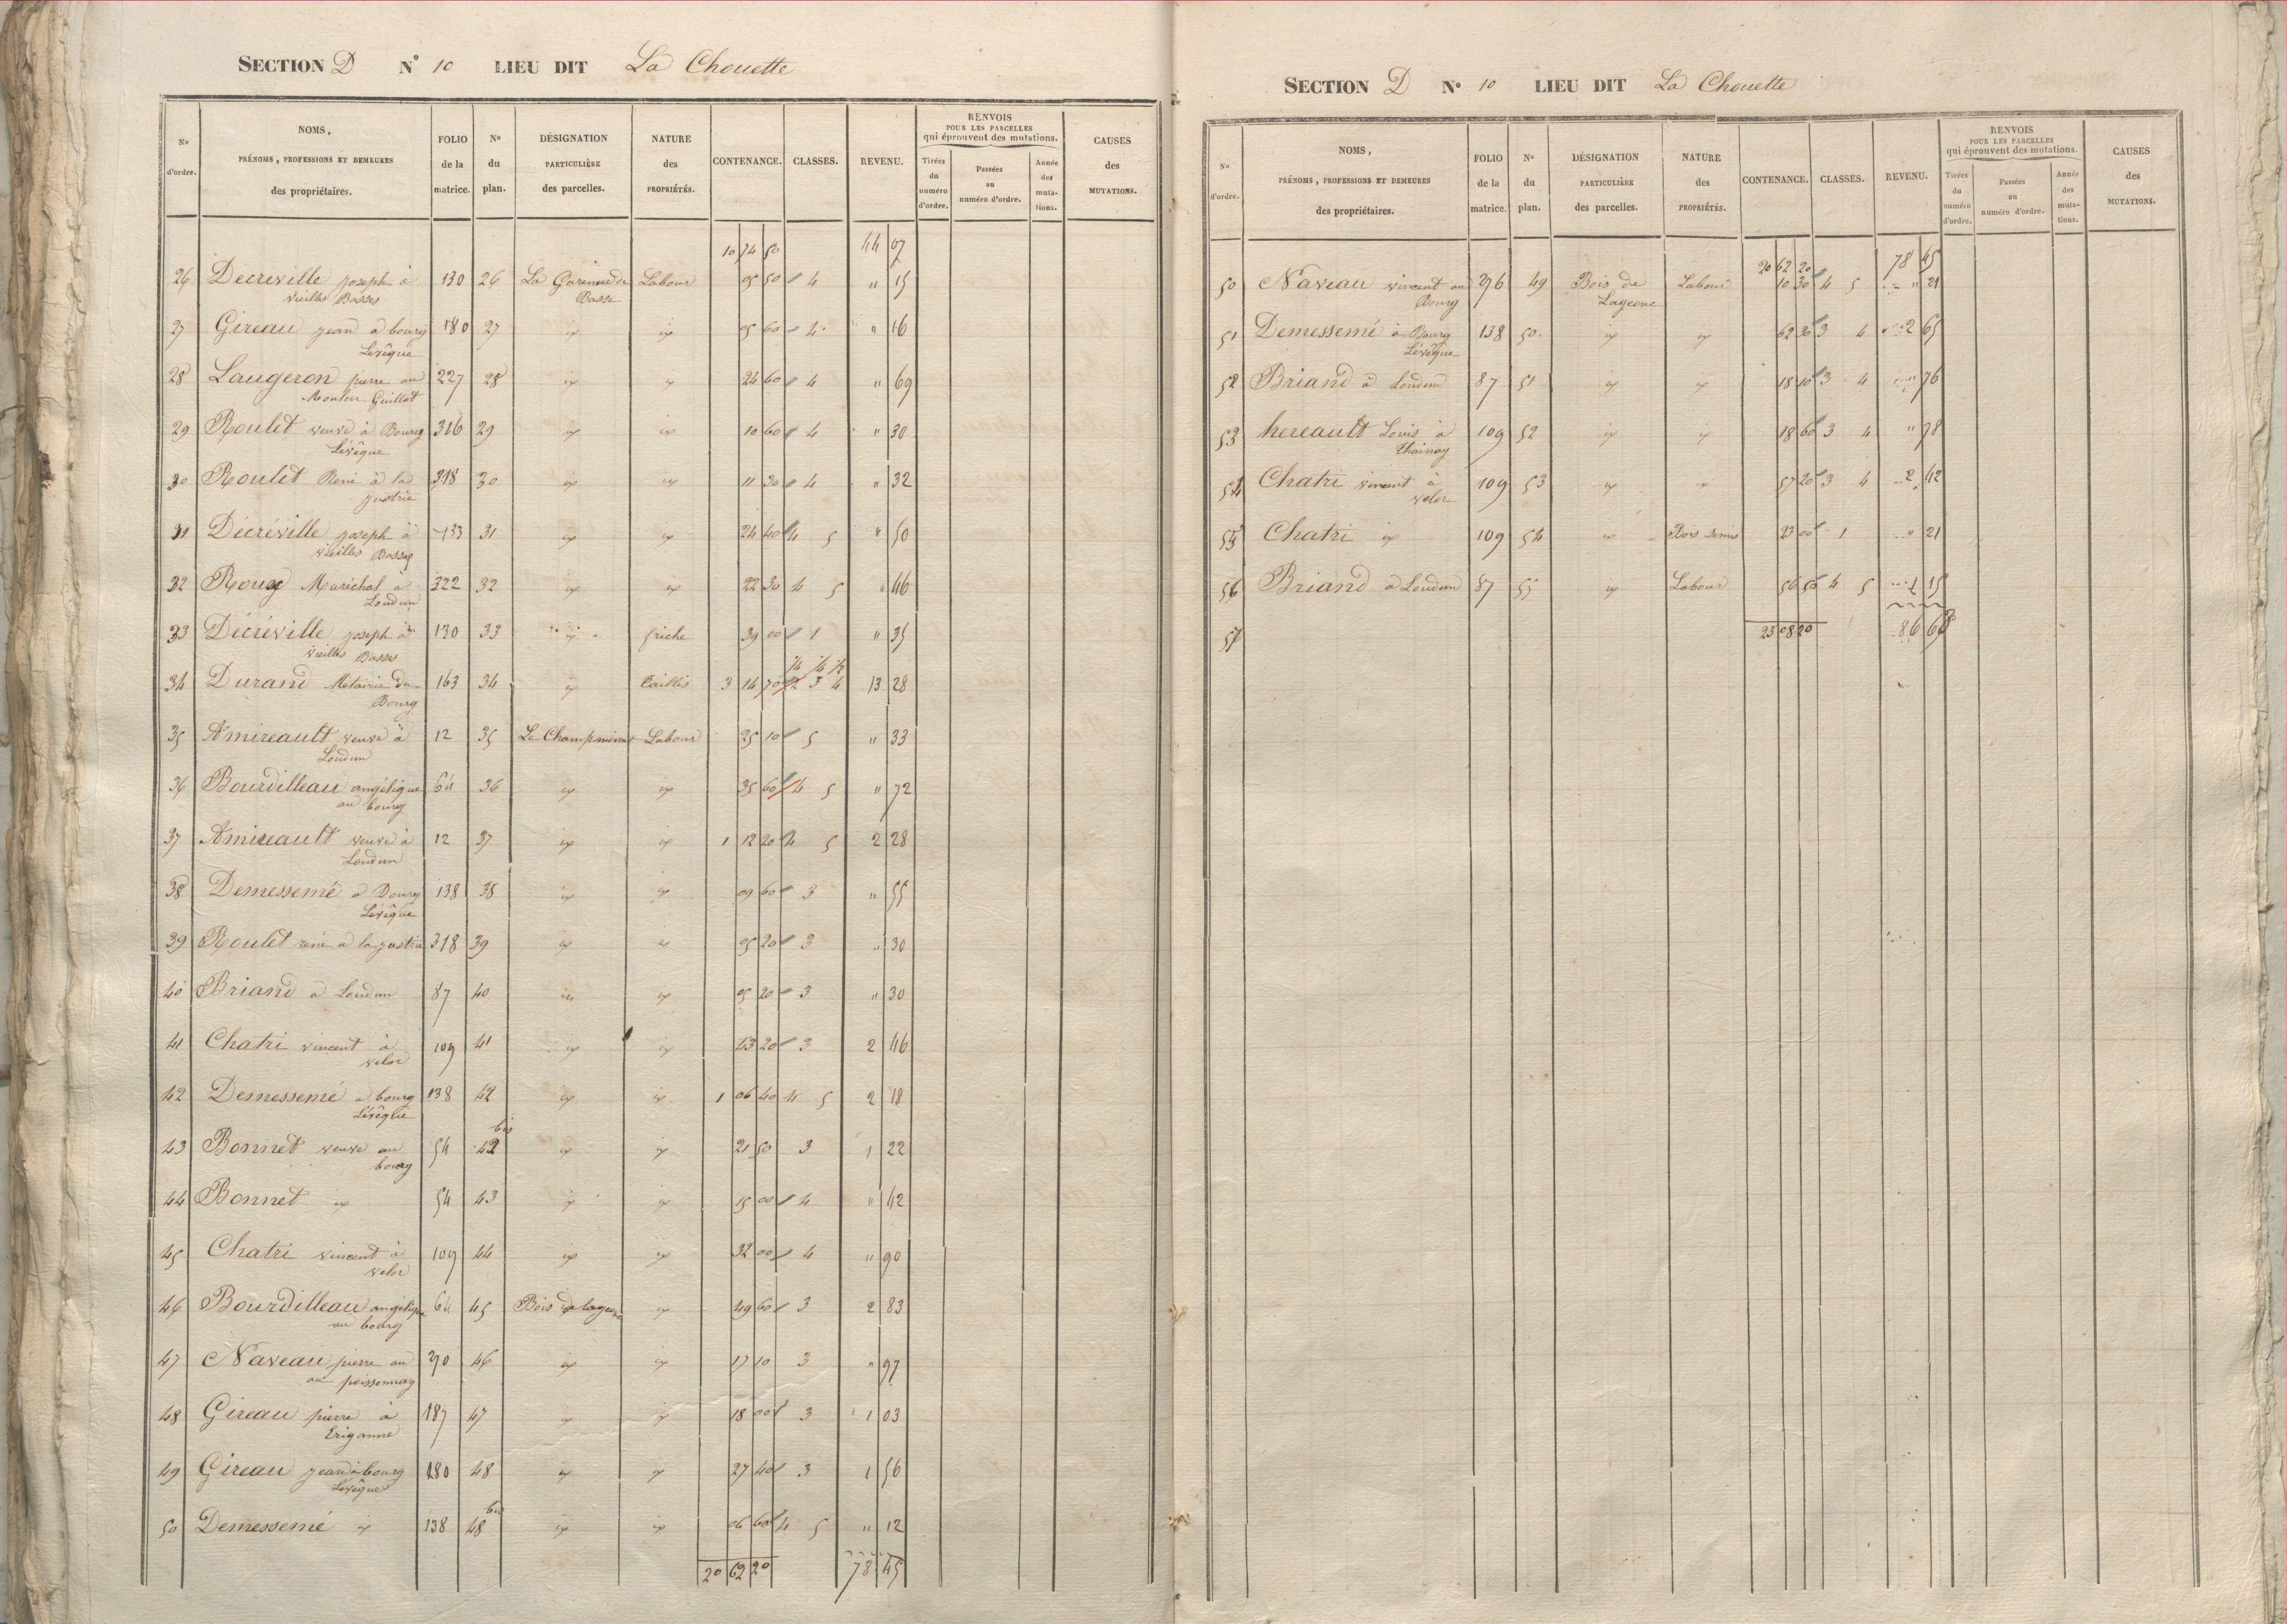 SECTION D N° 10 LIEU DIT La Chouette
N° d'ordre. NOMS, PRÉNOMS, PROFESSIONS ET DEMEURES des propriétaires. FOLIO de la matrice. N° du plan. DÉSIGNATION PARTICULIÈRE des parcelles. NATURE des PROPRIÉTÉS. CONTENANCE. CLASSES. REVENU. RENVOIS POUR LES PARCELLES qui éprouvent des mutations. Tirées du numéro d'ordre. Passées au numéro d'ordre. Année des mutations. CAUSES des MUTATIONS.
10 74 50 44 07
26 Decreville joseph à 130 26 La Garenne de Labour 05 50 4 " 15
vieilles Basses Basse
27 Gireau jean à bourg 180 27 id id 05 60 4 " 16
Lévêque
28 Laugeron pierre au 227 28 id id 24 60 4 " 69
Moulin Guillot
29 Roulet veuve à Bourg 316 29 id id 10 60 4 " 30
Lévêque
30 Roulet René à la 318 30 id id 11 30 4 " 32
justrie
31 Décréville joseph à 133 31 id id 24 40 4 5 " 50
vieilles Basses
32 Roug Maréchal à 322 32 id id 22 30 4 5 " 46
Loudun
33 Décréville joseph à 130 33 id friche 39 00 1 " 35
vieilles Basses
34 Durand Métairie du 163 34 id Taillis 3 14 70 2 3 4 13 28
Bourg
35 Amireault veuve à 12 35 Labour 25 10 5 " 33
Loudun
36 Bourdilleau angélique 64 36 id id 35 60 4 5 " 72
au bourg
37 Amireault veuve à 12 37 id id 1 12 20 4 5 2 28
Loudun
38 Demessemé à Bourg 138 38 id id 09 60 3 " 55
Lévêque
39 Roulet réné à la justrie 318 39 id id 05 20 3 " 30
40 Briand à Loudun 87 40 id id 05 20 3 " 30
41 Chatri vincent à 109 41 id id 43 20 3 2 46
velor
42 Demessemé à bourg 138 42 id id 1 06 40 4 5 2 18
Lévêque
43 Bonnet veuve au 54 42 bis id id 21 50 3 1 22
bourg
44 Bonnet id 54 43 id id 15 00 4 " 42
45 Chatri vincent à 109 44 id id 32 00 4 " 90
velor
46 Bourdilleau angélique 64 45 Bois de id 49 60 3 2 83
au bourg
47 Naveau pierre au 270 46 id id 17 10 3 " 97
au poissonnay
48 Gireau pierre à 187 47 id id 18 00 3 1 03
Eriganne
49 Gireau jean à bourg 180 48 id id 27 40 3 1 56
Lévêque
50 Demessemé id 138 48 bis id id 06 60 4 5 " 12
20 62 20 78 45
SECTION D N° 10 LIEU DIT La Chouette
N° d'ordre. NOMS, PRÉNOMS, PROFESSIONS ET DEMEURES des propriétaires. FOLIO de la matrice. N° du plan. DÉSIGNATION PARTICULIÈRE des parcelles. NATURE des PROPRIÉTÉS. CONTENANCE. CLASSES. REVENU. RENVOIS POUR LES PARCELLES qui éprouvent des mutations. Tirées du numéro d'ordre. Passées au numéro d'ordre. Année des mutations. CAUSES des MUTATIONS.
20 62 20 78 45
50 Naveau vincent au 276 49 Bois de Labour 10 30 4 5 " 21
Bourg
51 Demessemé à Bourg 138 50 id id 62 30 3 4 2 65
Lévêque
52 Briand à Loudun 87 51 id id 18 10 3 4 " 76
53 hereault Louis à 109 52 id id 18 60 3 4 " 78
Thainay
54 Chatri vincent à 109 53 id id 57 20 3 4 2 42
velor
55 Chatri id 109 54 id Bois 23 00 1 " 21
56 Briand à Loudun 87 55 id Labour 56 50 4 5 1 15
57 23 08 20 86 6